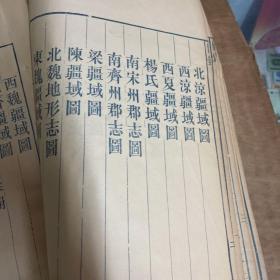 北涼疆域圖
西涼疆域圖
西夏疆域圖
楊氏疆域圖
南宋州郡志圖
南齊州郡志圖
梁疆域圖
陳疆域圖
北魏地形志圖
東魏疆域圖
西魏疆域圖